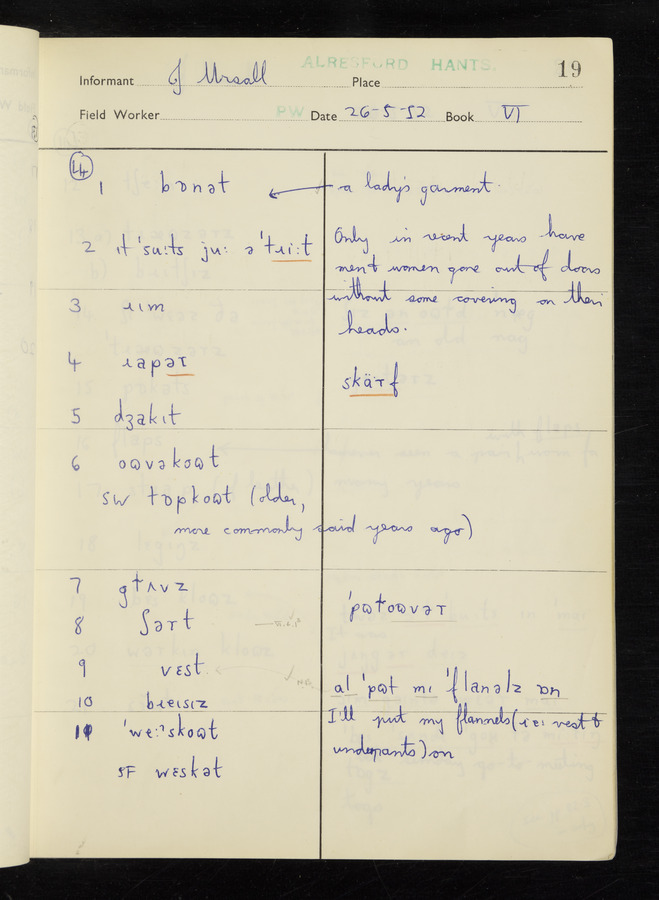 ALRESFORD HANTS.
19
Informant Place
Field Worker PW Date 26-5-52 Book VI
14
1 bɒnət
a lady's garment.
2 ɪt 'su:ts ju: ə'tɹi:t
Only in recent years have
ment women gone out of doors
without some covering on their
heads.
3 ɹɪm
4 ɹapəɾ
skärf
5 dʒakɪt
6 oʊvəkoʊt
SW tɒpkoʊt (older,
more commonly said years ago)
7 glʌvz
8 ʃərt
'pʊtoʊvər
9 vɛst
10 bɹɛɪsɪz
al 'pʊt mɪ 'flanəlz ɒn
I'll put my flannels (i.e. vest &
underpants) on
11 'we:'skoʊt
SF wɛskət